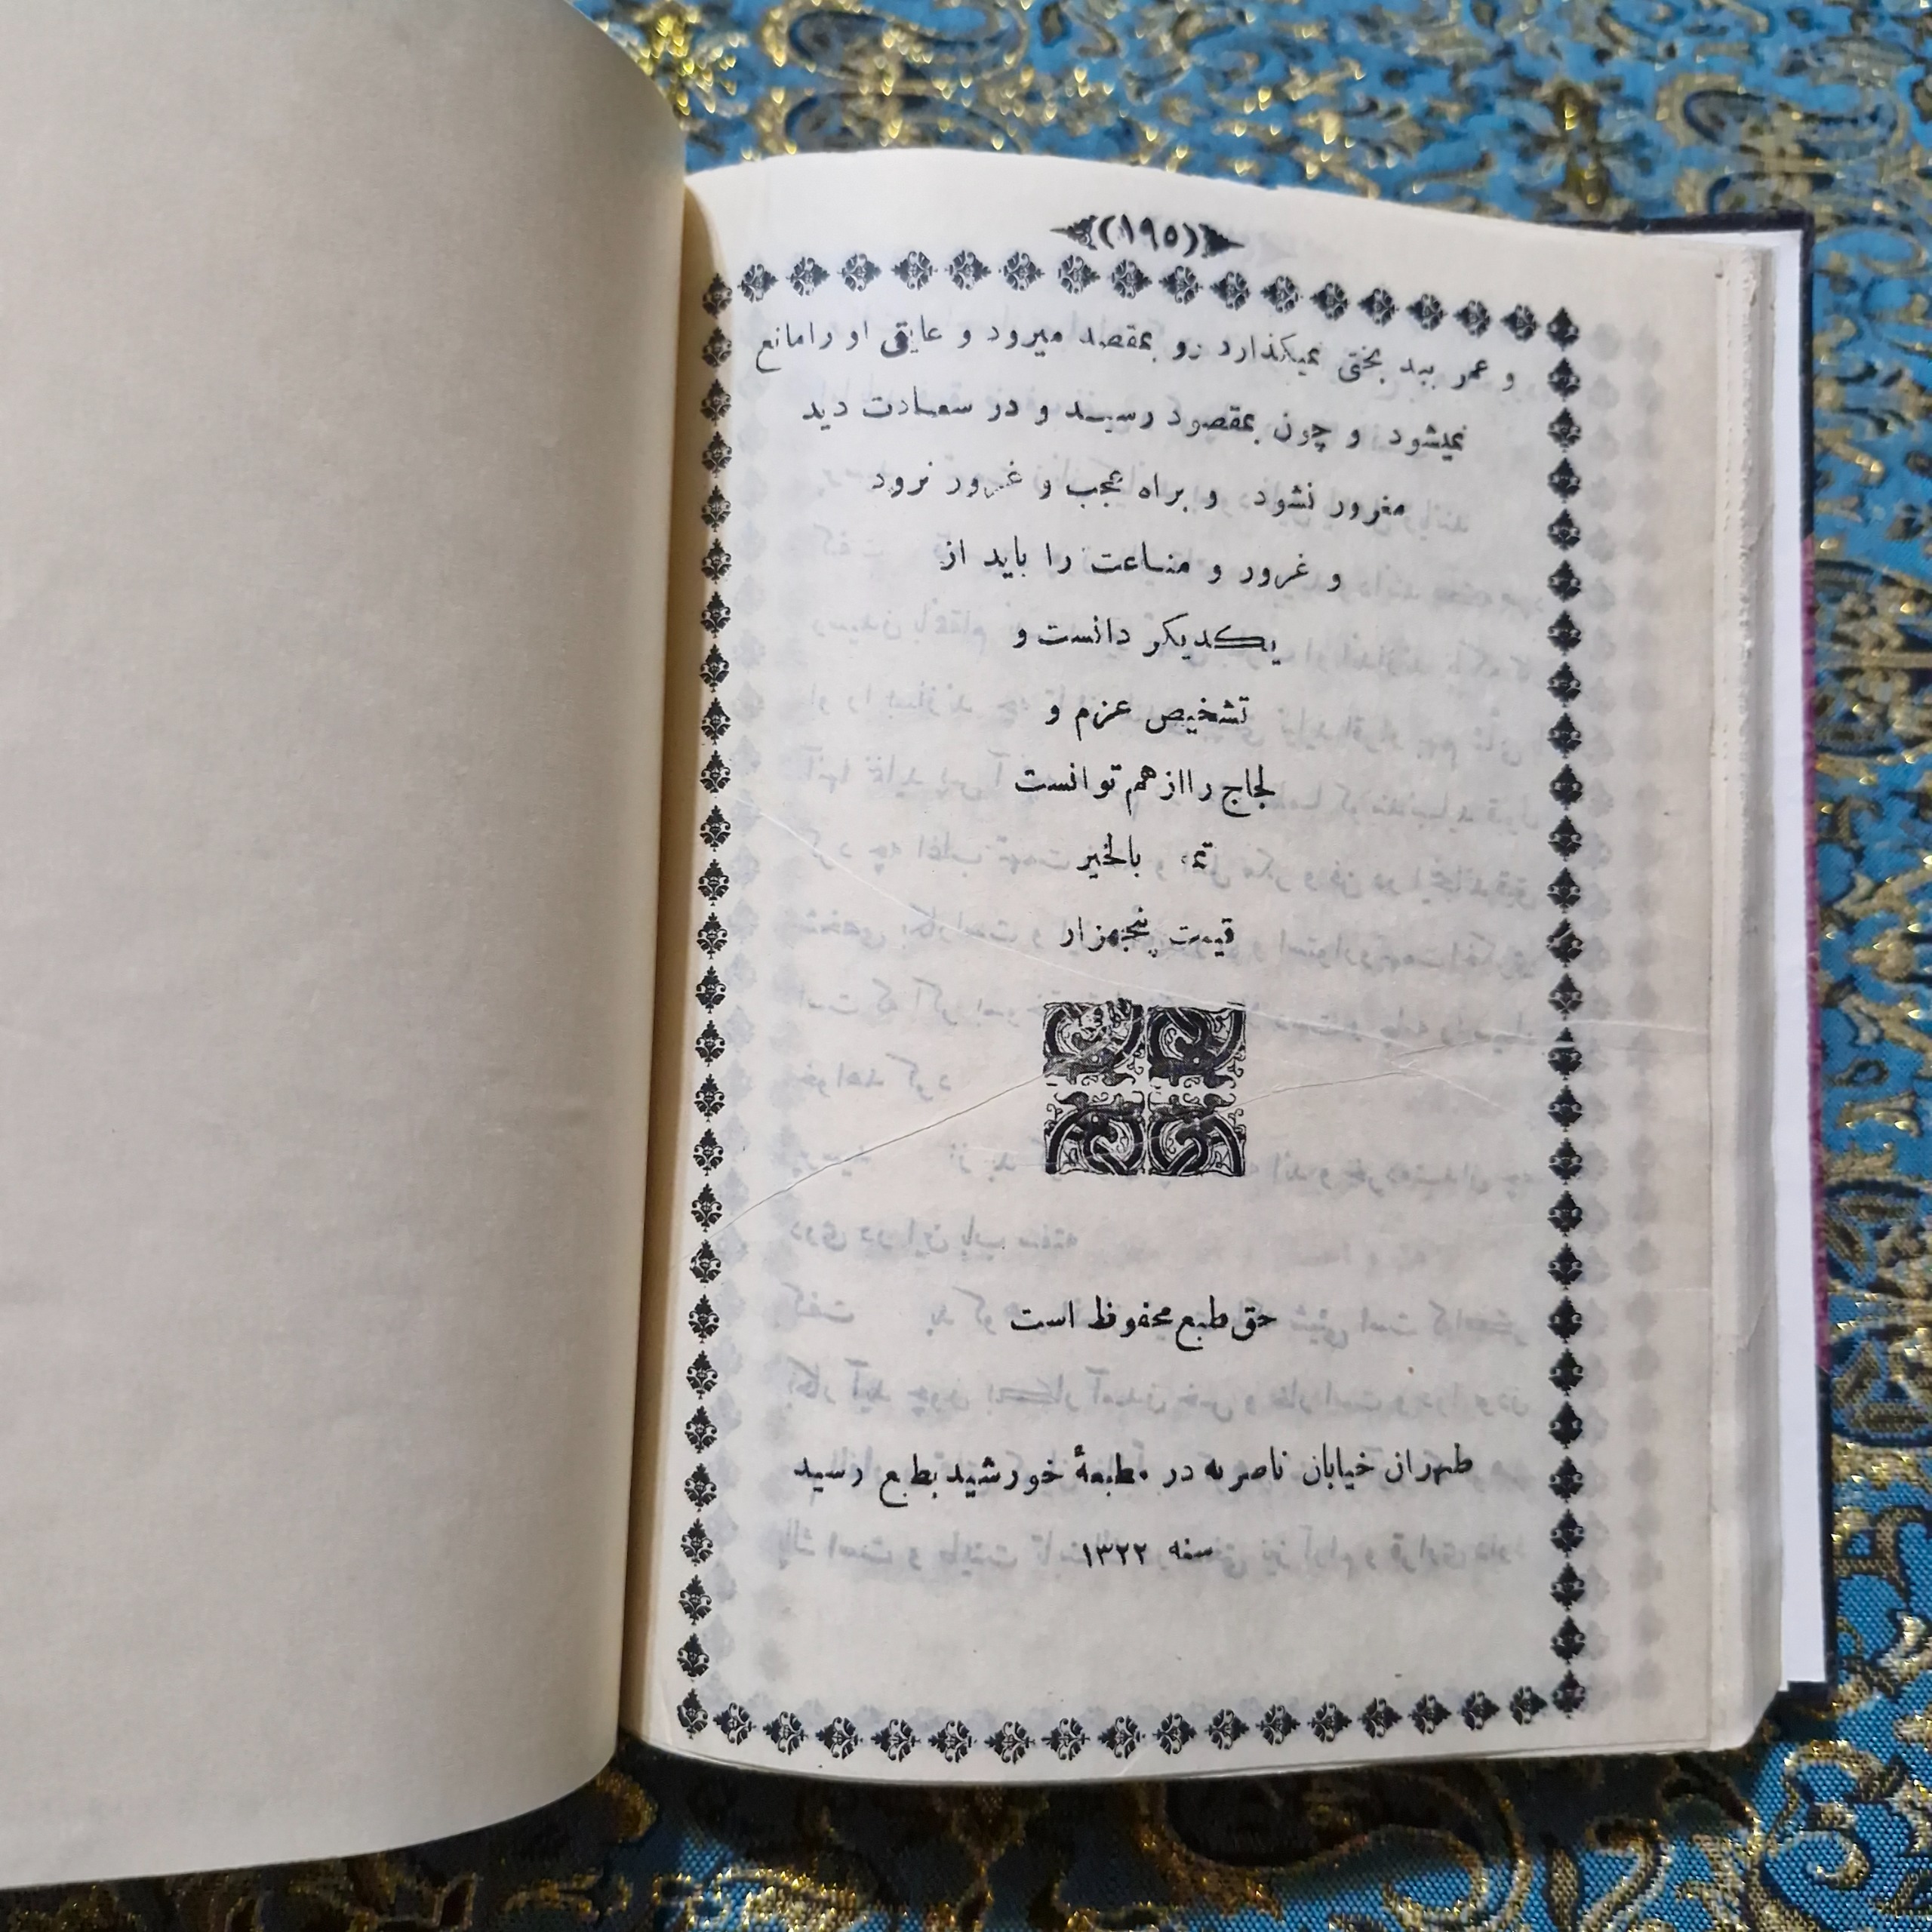 (۱۹۵)
و عمر ببد بختی نمیکذارد رو بمقصد میرود و عایق او رامانع
نمیشود و چون بمقصود رسید و در سعادت دید
مغرور نشود و براه عجب و غرور نرود
و غرور و مناعت را باید از
یکدیکر دانست و
تشخیص عزم و
لجاج رااز هم توانست
تمة بالخیر
قیمت پنجهزار
حق طبع محفوظ است
طهران خیابان ناصریه در مطبعهٔ خورشید بطبع رسید
سنه ۱۳۲۲